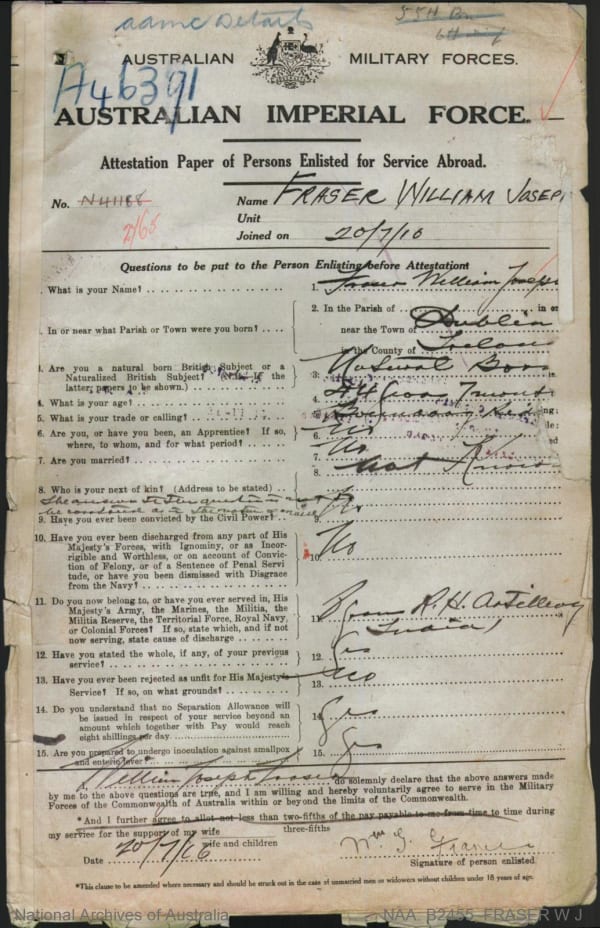 aamc Details
55th Bn
AUSTRALIAN MILITARY FORCES.
A46391
AUSTRALIAN IMPERIAL FORCE.
Attestation Paper of Persons Enlisted for Service Abroad.
No. N41188
Name FRASER WILLIAM JOSEP
Unit
Joined on 20/7/16
Questions to be put to the Person Enlisting before Attestation
. What is your Name?
1. Fraser William Joseph
2. In the Parish of in or
. In or near what Parish or Town were you born?
near the Town of Dublin
in the County of Ireland
3. Are you a natural born British Subject or a
Naturalized British Subject? (N.B.—If the
latter, papers to be shown.)
3. Natural Born
4. What is your age?
4.
5. What is your trade or calling?
5.
6. Are you, or have you been, an Apprentice? If so,
where, to whom, and for what period?
6. No
7. Are you married?
7. No
8. Who is your next of kin? (Address to be stated)
8. Not Known
9. Have you ever been convicted by the Civil Power?
9.
10. Have you ever been discharged from any part of His
Majesty's Forces, with Ignominy, or as Incor-
rigible and Worthless, or on account of Convic-
tion of Felony, or of a Sentence of Penal Servi
tude, or have you been dismissed with Disgrace
from the Navy?
10. No
11. Do you now belong to, or have you ever served in, His
Majesty's Army, the Marines, the Militia, the
Militia Reserve, the Territorial Force, Royal Navy,
or Colonial Forces? If so, state which, and if not
now serving, state cause of discharge
11. R.H. Artillery
India
12. Have you stated the whole, if any, of your previous
service?
12. Yes
13. Have you ever been rejected as unfit for His Majesty's
Service? If so, on what grounds?
13. No
14. Do you understand that no Separation Allowance will
be issued in respect of your service beyond an
amount which together with Pay would reach
eight shillings per day.
14. Yes
15. Are you prepared to undergo inoculation against smallpox
and enteric fever
15. Yes
I William Joseph Fraser do solemnly declare that the above answers made
by me to the above questions are true, and I am willing and hereby voluntarily agree to serve in the Military
Forces of the Commonwealth of Australia within or beyond the limits of the Commonwealth.
*And I further agree to allot not less than two-fifths of the pay payable to me from time to time during
three-fifths
my service for the support of my wife
wife and children
Date 20/7/16
Wm J. Fraser
Signature of person enlisted.
*This clause to be amended where necessary and should be struck out in the case of unmarried men or widowers without children under 18 years of age.
National Archives of Australia
NAA B2455 FRASER W J